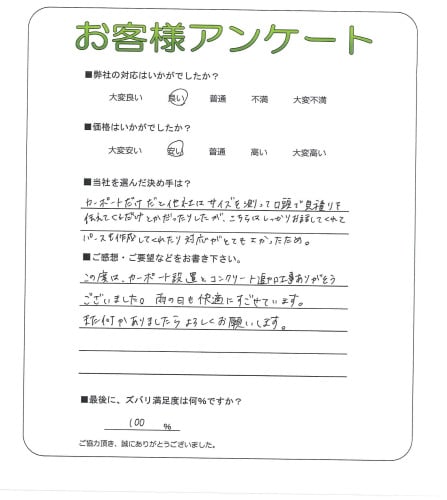 お客様アンケート
■弊社の対応はいかがでしたか?
大変良い 良い 普通 不満 大変不満
■価格はいかがでしたか?
大変安い 安い 普通 高い 大変高い
■当社を選んだ決め手は?
カーポートだけだと他社はサイズを測って口頭で見積りを
伝えてくるだけとかだったりしたが、こちらはしっかりお話してくれて
パースも作成してくれたり対応がとてもよかったため。
■ご感想・ご要望などをお書き下さい。
この度は、カーポート設置とコンクリート追加工事ありがとう
ございました。雨の日も快適にすごせています。
また何かありましたらよろしくお願いします。
■最後に、ズバリ満足度は何%ですか?
100 %
ご協力頂き、誠にありがとうございました。